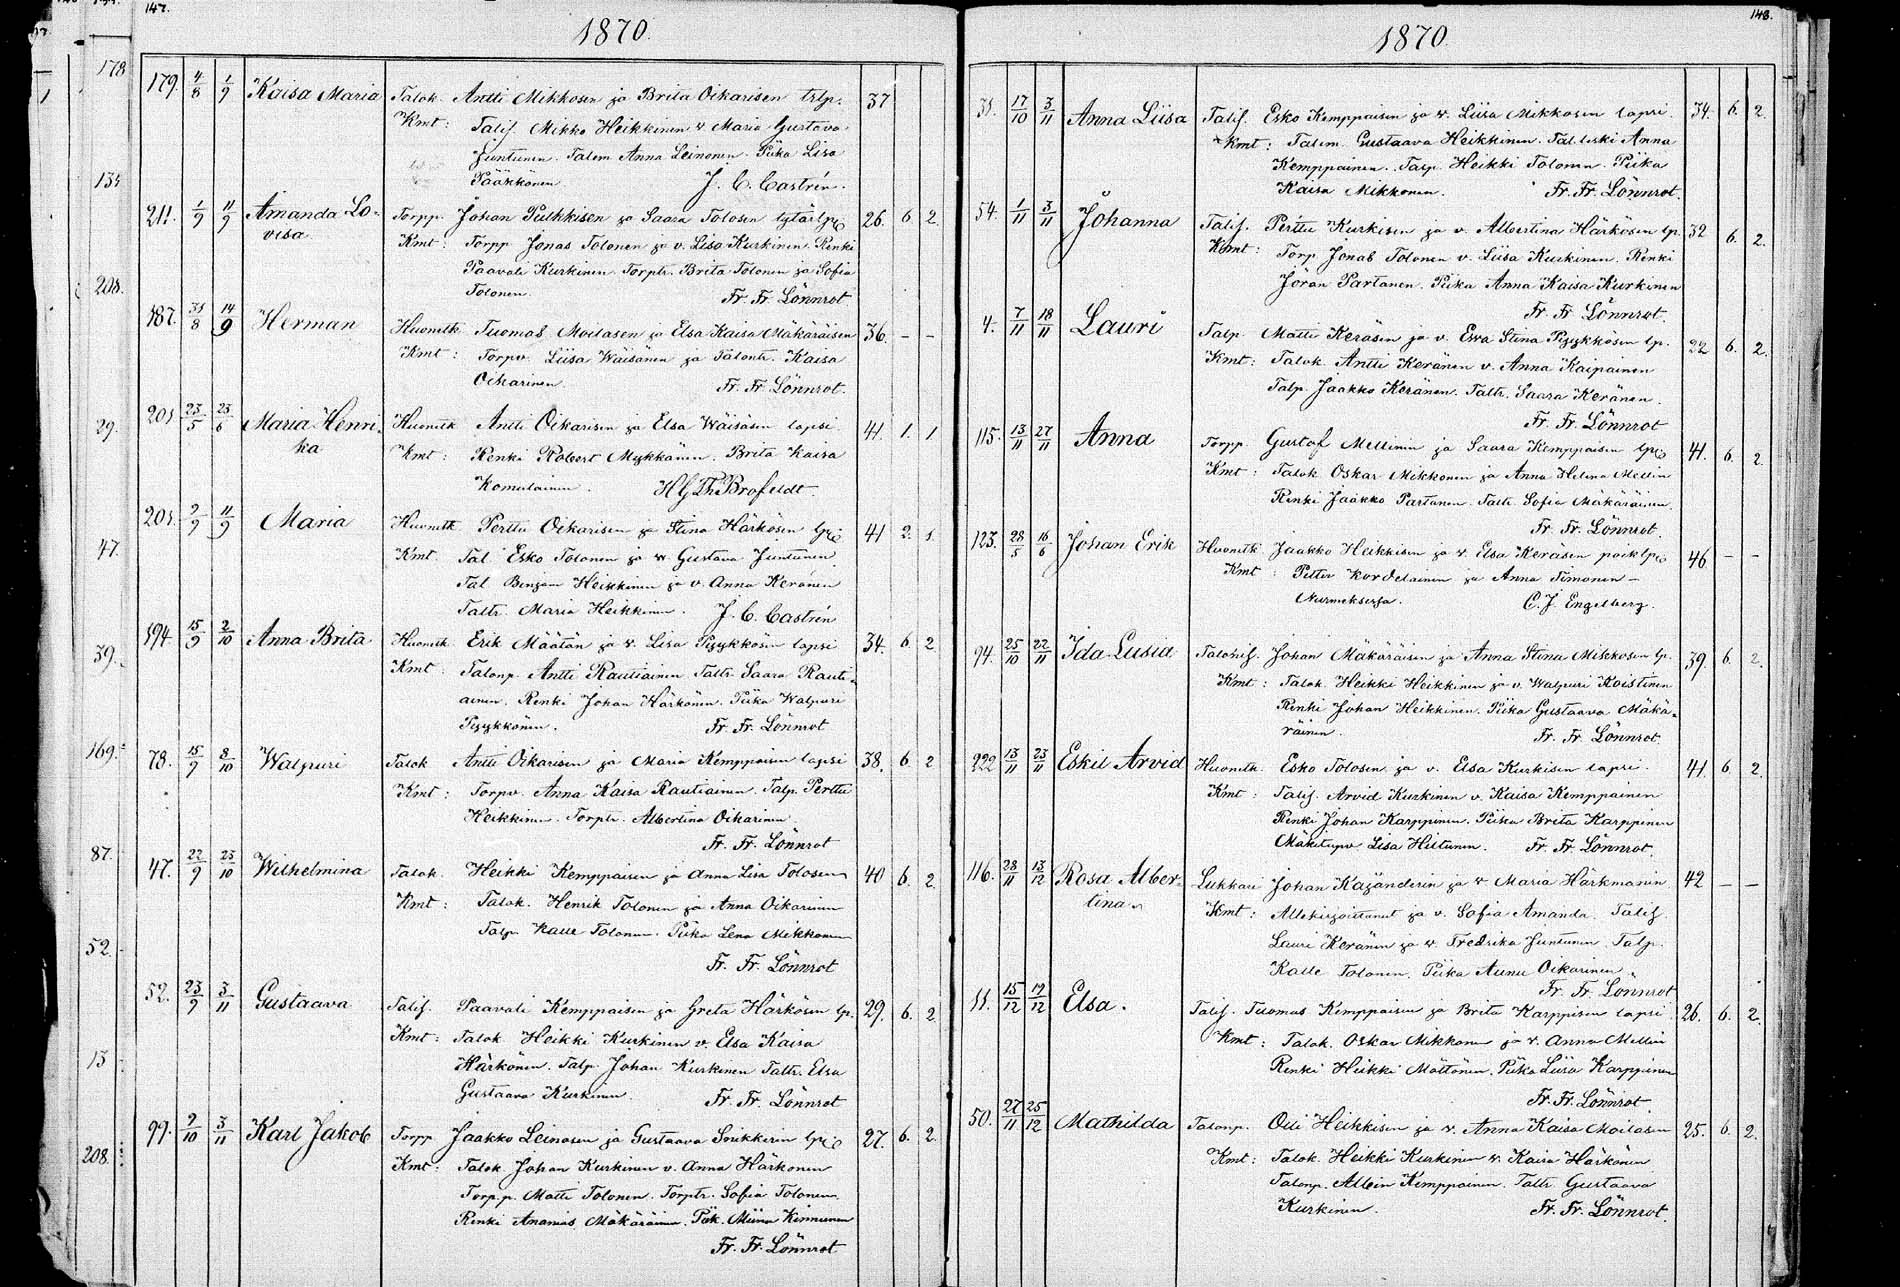 147.
1870.
179. 4/8 1/9 Kaisa Maria Talok. Antti Mikkosen ja Brita Oikarisen 37
Kmt: Talif. Mikko Heikkinen v. Maria Gustava
Juntunen. Talem. Anna Leinonen. Piika Lisa
Pääkkönen J. C. Castrén.
211. 1/9 11/9 Amanda Lo- Torpp. Johan Pulkkisen ja Saara Tolosen 26. 6 2
visa Kmt: Torpp Jonas Tolonen ja v. Lisa Kurkinen. Renki
Paavali Kurkinen. Torptr. Brita Tolonen ja Sofia
Tolonen. Fr. Fr. Lönnrot
187. 31/8 14/9 Herman Huonmtk. Tuomas Moilasen ja Elsa Kaisa Mäkäräisen 36. – –
Kmt: Torpv. Liisa Wäisänen ja Talontr. Kaisa
Oikarinen. Fr. Fr. Lönnrot.
201 23/5 23/6 Maria Henri- Huonmtk Antti Oikarisen ja Elsa Wäisäsen lapsi 41. 1. 1
ka Kmt: Renki Robert Mykkänen. Brita Kaisa
Komulainen. H G Th Brofeldt.
201. 9/9 11/9 Maria Huonmtk Perttu Oikarisen ja Stina Härkösen 41 2. 1.
Kmt. Tal Esko Tolonen ja v. Gustava Juntunen.
Tal Benjam Heikkinen ja v. Anna Keränen
Taltr. Maria Heikkinen. J. C. Castrén
194. 15/9 2/10 Anna Brita Huonmtk Erik Määtän ja v. Lisa Pyykkösen lapsi 34. 6 2
Kmt: Talonp. Antti Rautiainen Taltr. Saara Rauti-
ainen. Renki Johan Härkönen. Piika Walpuri
Pyykkönen. Fr. Fr. Lönnrot
78. 15/9 8/10 Walpuri Talok Antti Oikarisen ja Maria Kemppaisen lapsi 38. 6 2
Kmt: Torpv. Anna Kaisa Rautiainen. Talp. Perttu
Heikkinen. Torptr. Albertina Oikarinen.
Fr. Fr. Lönnrot
47. 22/9 23/10 Wilhelmina Talok. Heikki Kemppaisen ja Anna Lisa Tolosen 40 6. 2.
Kmt: Talok. Henrik Tolonen ja Anna Oikarinen
Talp Kalle Tolonen. Piika Lena Mikkonen
Fr. Fr. Lönnrot
52. 23/9 3/11 Gustaava Talif. Paavali Kemppaisen ja Greta Härkösen lp. 29. 6. 2
Kmt: Talok Heikki Kurkinen v. Elsa Kaisa
Härkönen. Talp. Johan Kurkinen Taltr. Elsa
Gustaava Kurkinen. Fr. Fr. Lönnrot
99. 9/10 3/11 Karl Jakob Torpp Jaakko Leinosen ja Gustaava Snikkerin 27. 6. 2.
Kmt: Talok. Johan Kurkinen v. Anna Härkönen
Torp.p. Matti Tolonen. Torptr. Sofia Tolonen.
Renki Ananias Mäkäräinen. Piik. Miina Kinnunen
Fr. Fr. Lönnrot
178
135
208.
29.
47.
39.
169.
87.
52.
13
208.
148.
1870
31. 17/10 3/11 Anna Liisa Talif. Esko Kemppaisen ja v. Liisa Mikkosen lapsi 34. 6. 2.
Kmt: Talem. Gustaava Heikkinen. Tal.leski Anna
Kemppainen. Talp. Heikki Tolonen. Piika
Kaisa Mikkonen. Fr. Fr. Lönnrot.
54. 1/11 3/11 Johanna Talif. Perttu Kurkisen ja v. Albertina Härkösen lp. 32 6. 2.
Kmt: Torp Jonas Tolonen v. Liisa Kurkinen. Renki
Jöran Partanen. Piika Anna Kaisa Kurkinen
Fr. Fr. Lönnrot.
4. 7/11 18/11 Lauri Talp. Matti Keräsen ja v. Ewa Stina Pyykkösen lp. 22 6. 2.
Kmt: Talok. Antti Keränen v. Anna Kaipainen
Talp. Jaakko Keränen. Taltr. Saara Keränen.
Fr. Fr. Lönnrot
115. 13/11 27/11 Anna Torpp. Gustaf Mellinin ja Saara Kemppaisen 41. 6. 2.
Kmt: Talok Oskar Mikkonen ja Anna Helena Mellin
Renki Jaakko Partanen. Taltr. Sofia Mäkäräinen.
Fr. Fr. Lönnrot.
123. 28/5 16/6 Johan Erik Huonmtk Jaakko Heikkisen ja v. Elsa Keräsen 46 – –
Kmt: Petter Kordelainen ja Anna Timonen –
Nurmeksessa. C. J. Engelberg.
94. 25/10 22/11 Ida Lusia Johan Mäkäräisen ja Anna Stina Mikkosen lp. 39. 6. 2.
Kmt: Talok. Heikki Heikkinen ja v. Walpuri Koistinen
Renki Johan Heikkinen. Piika Gustaava Mäkä-
räinen. Fr. Fr. Lönnrot.
222 13/11 23/11 Eskil Arvid Huonmtk. Esko Tolosen ja v. Elsa Kurkisen lapsi. 41 6. 2.
Kmt: Talif. Arvid Kurkinen v. Kaisa Kemppainen
Renki Johan Karppinen. Piika Brita Karppinen
Mäkitupv Lisa Hiltunen. Fr. Fr. Lönnrot.
116. 28/11 13/12 Rosa Alber- Lukkari Johan Kajanderin ja v Maria Härkmanin 42 – –
tina Kmt: Allekirjoittanut ja v. Sofia Amanda. Talif.
Lauri Keränen ja v. Fredrika Juntunen. Talp.
Kalle Tolonen. Piika Aunu Oikarinen
Fr. Fr. Lönnrot
11. 15/12 19/12 Elsa. Talif. Tuomas Kemppaisen ja Brita Karppisen lapsi 26. 6. 2.
Kmt: Talok. Oskar Mikkonen ja v. Anna Mellin
Renki Heikki Möttönen. Piika Liisa Karppinen
Fr. Fr. Lönnrot.
50. 27/11 25/12 Mathilda Talonp. Olli Heikkisen ja v. Anna Kaisa Moilasen 25. 6. 2.
Kmt: Talok. Heikki Kurkinen v. Kaisa Härkönen
Talonp. Albin Kemppainen. Taltr. Gustaava
Kurkinen. Fr. Fr. Lönnrot.